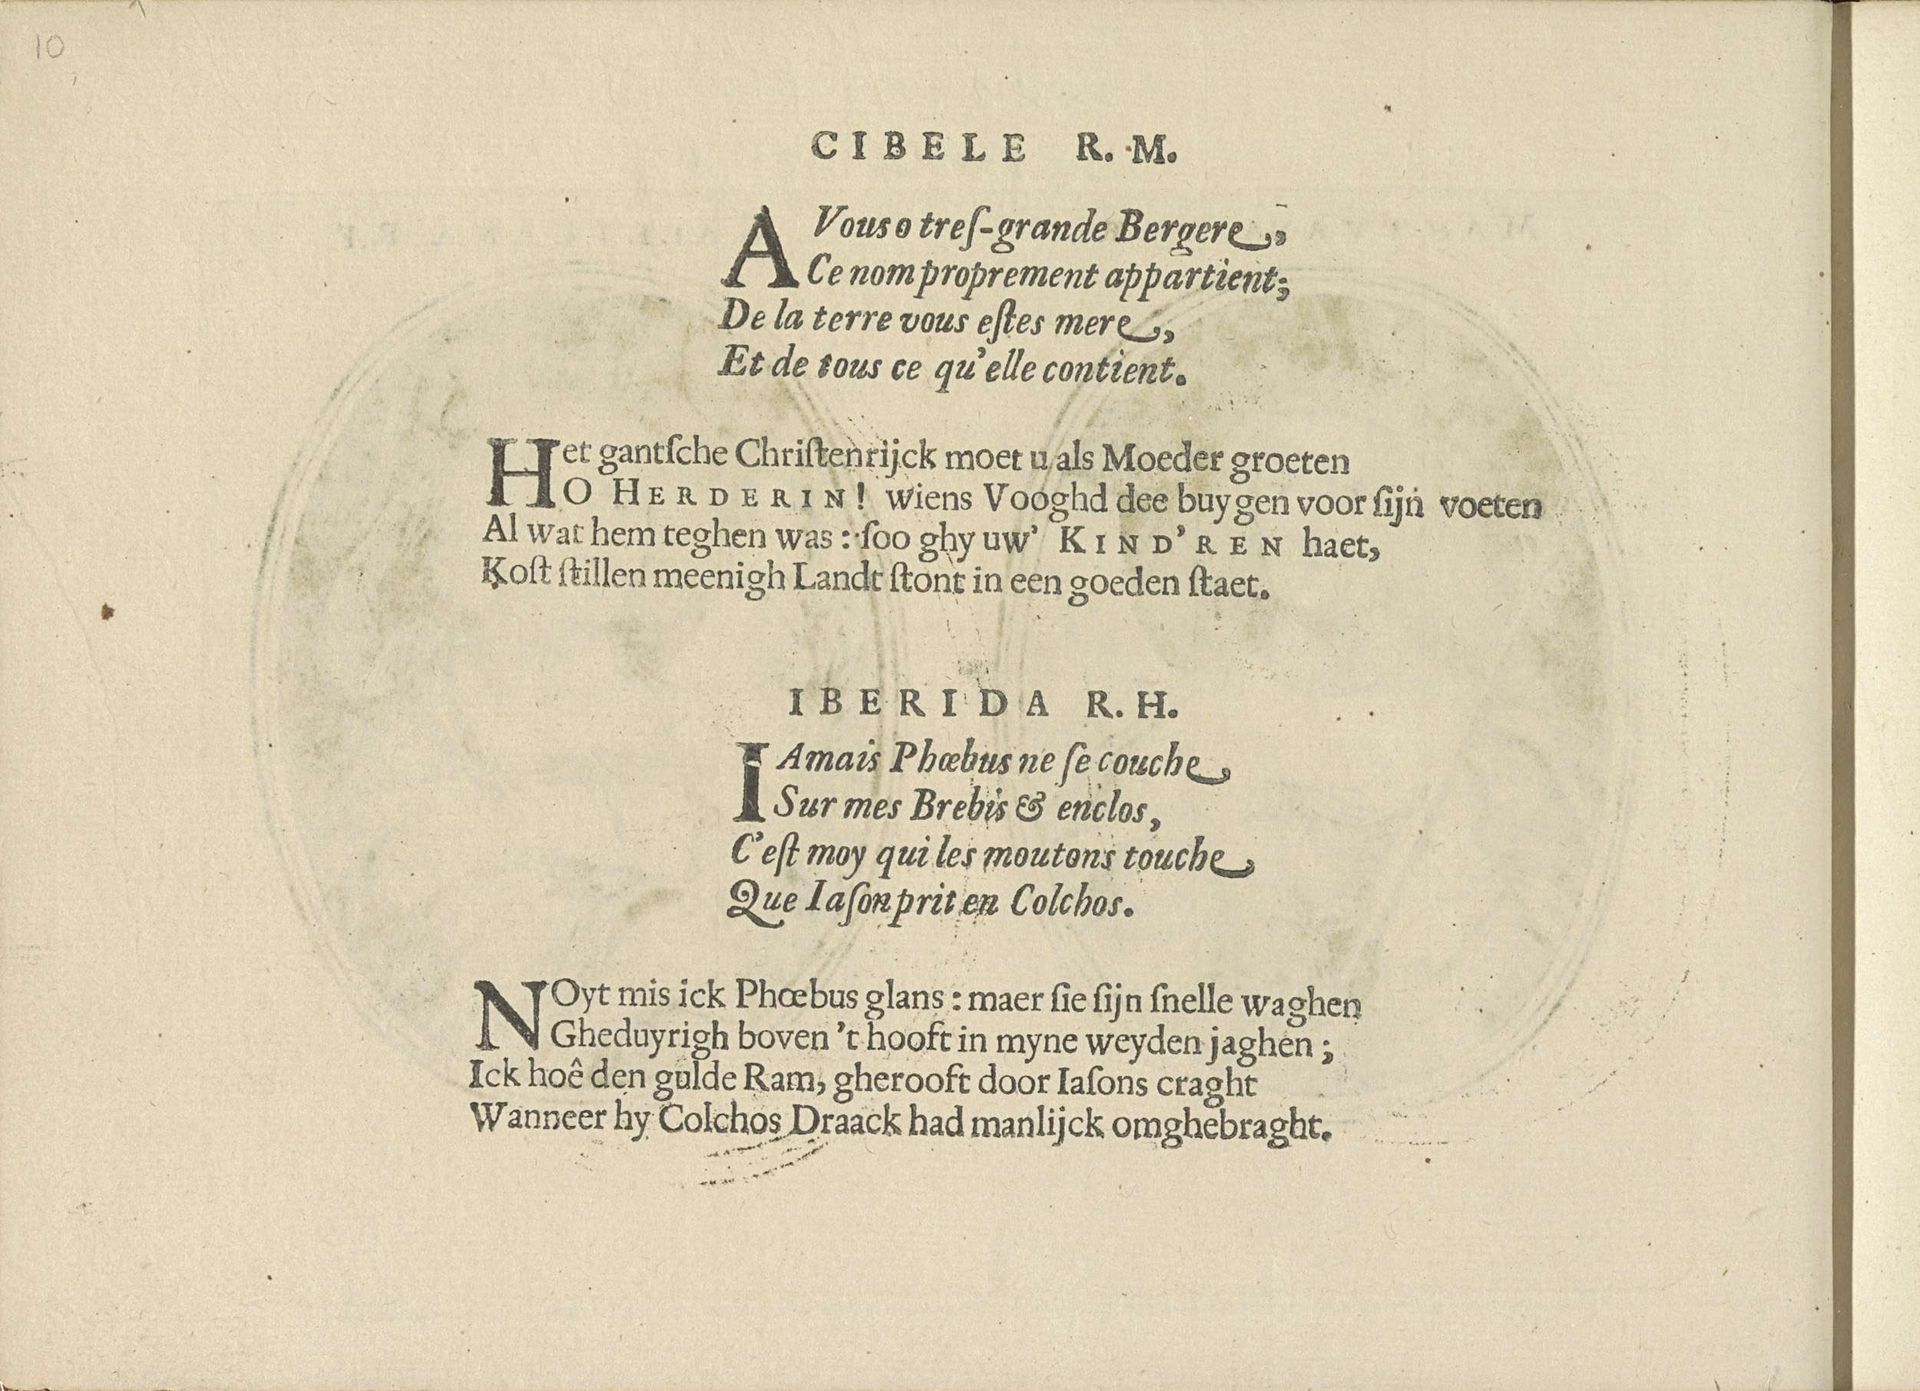 10
CIBELE R. M.
A Vous o treſ-grande Bergere,
Ce nom proprement appartient;
De la terre vous eſtes mere,
Et de tous ce qu'elle contient.
Het gantſche Chriſtenrijck moet u als Moeder groeten
O HERDERIN! wiens Vooghd dee buygen voor ſijn voeten
Al wat hem teghen was: ſoo ghy uw' KIND'REN haet,
Koſt ſtillen meenigh Landt ſtont in een goeden ſtaet.
IBERIDA R. H.
IAmais Phœbus ne ſe couche
Sur mes Brebis & enclos,
C'eſt moy qui les moutons touche
Que Iaſon prit en Colchos.
NOyt mis ick Phœbus glans: maer ſie ſijn ſnelle waghen
Gheduyrigh boven 't hooft in myne weyden jaghen;
Ick hoê den gulde Ram, gherooft door Iaſons craght
Wanneer hy Colchos Draack had manlijck omghebraght.